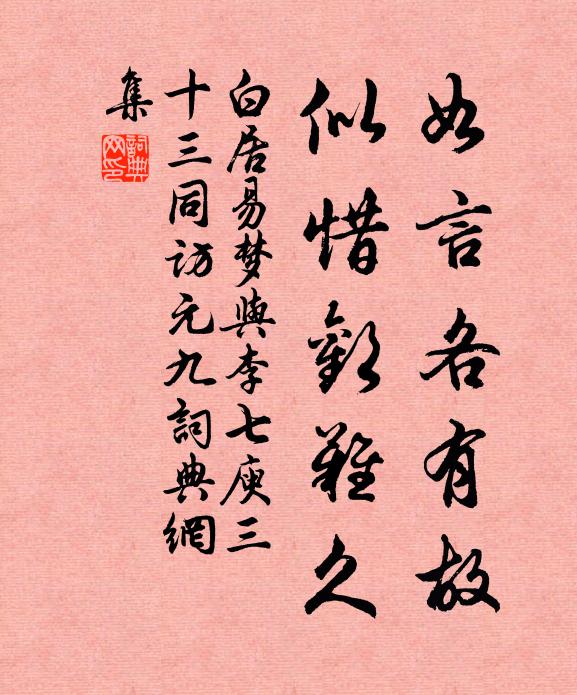 如言各有故
似惜歡難久
白居易梦與李七庾三
十三同访元九詞典網
集
詞典
网印